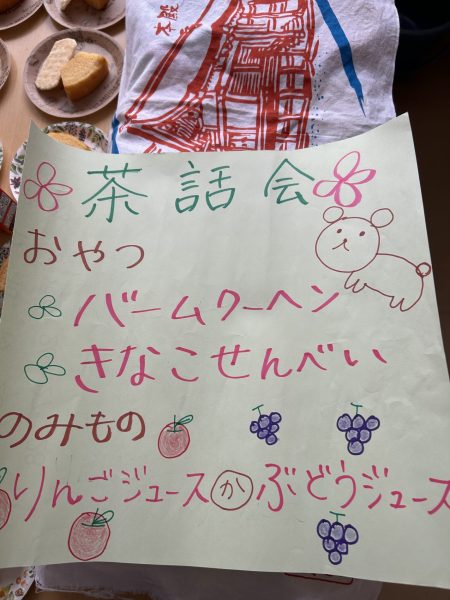 茶話会
おやつ
バームクーヘン
きなこせんべい
のみもの
りんごジュースかぶどうジュース